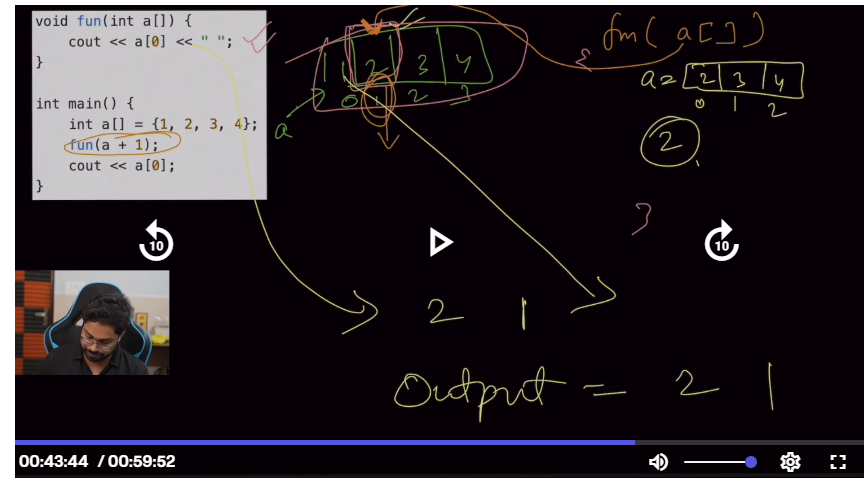 void fun(int a[]) {
    cout << a[0] << " ";
}
int main() {
    int a[] = {1, 2, 3, 4};
    fun(a + 1);
    cout << a[0];
}
a
1 2 3 4
0 1 2 3
fun( a[])
{
a = 2 3 4
0 1 2
2
}
10
10
2 1
Output = 2 1
00:43:44 / 00:59:52